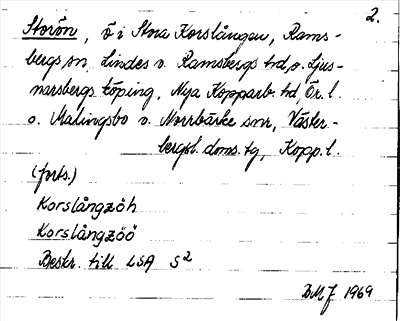 2.
Storön, ö i Stora Korslången, Rams-
bergs sn, Lindes o. Ramsbergs hd, o. Ljus-
narsbergs köping, Nya Kopparb. hd, Ör. l.
o. Malingsbo o. Norrbärke snr, Väster-
bergsl. doms. tg, Kopp. l.
(forts.)
Korslångzöh
Korslångzöö
Beskr. till LSA S2
BMJ 1969